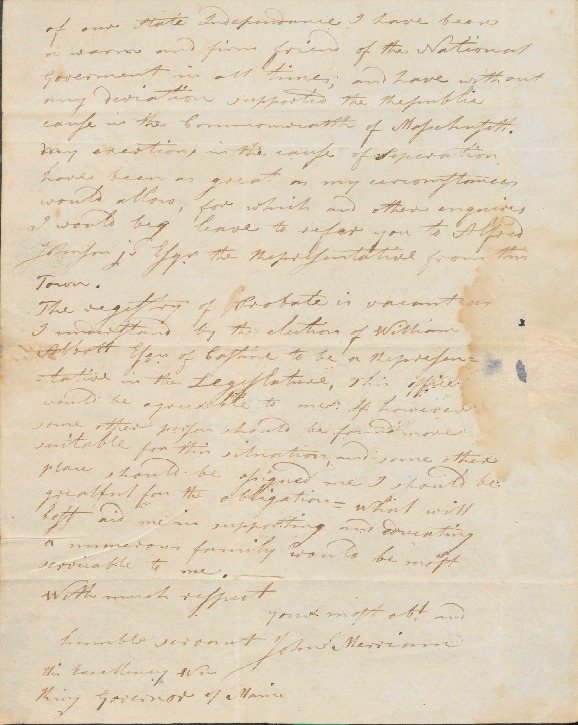 of our State Independance I have been
a warm and firm friend of the National
Goverment in all times; and have without
any deviation supported the Republic
cause in the Commonwealth of Massachusetts.
My exertions in the cause of Seperation
have been as great as my circumstances
would allow, for which and other enquiries
I would beg leave to refer you to Alfred
Johnson jr Esqr the Representative from this
Town.
The registry of Probate is vacant as
I understand by the election of William
Abbott Esqr of Castine to be a Represen-
-tative in the Legislature, This office
would be agreeable to me. If however
some other person should be found more
suitable for this situation, and some other
place should be assigned me I should be
greatful for the obligation = what will
best aid me in supporting and educating
a numerous family would be most
servicable to me.
With much respect
your most obt and
humble servant John Merriam
His Excellency Wm
King Governor of Maine